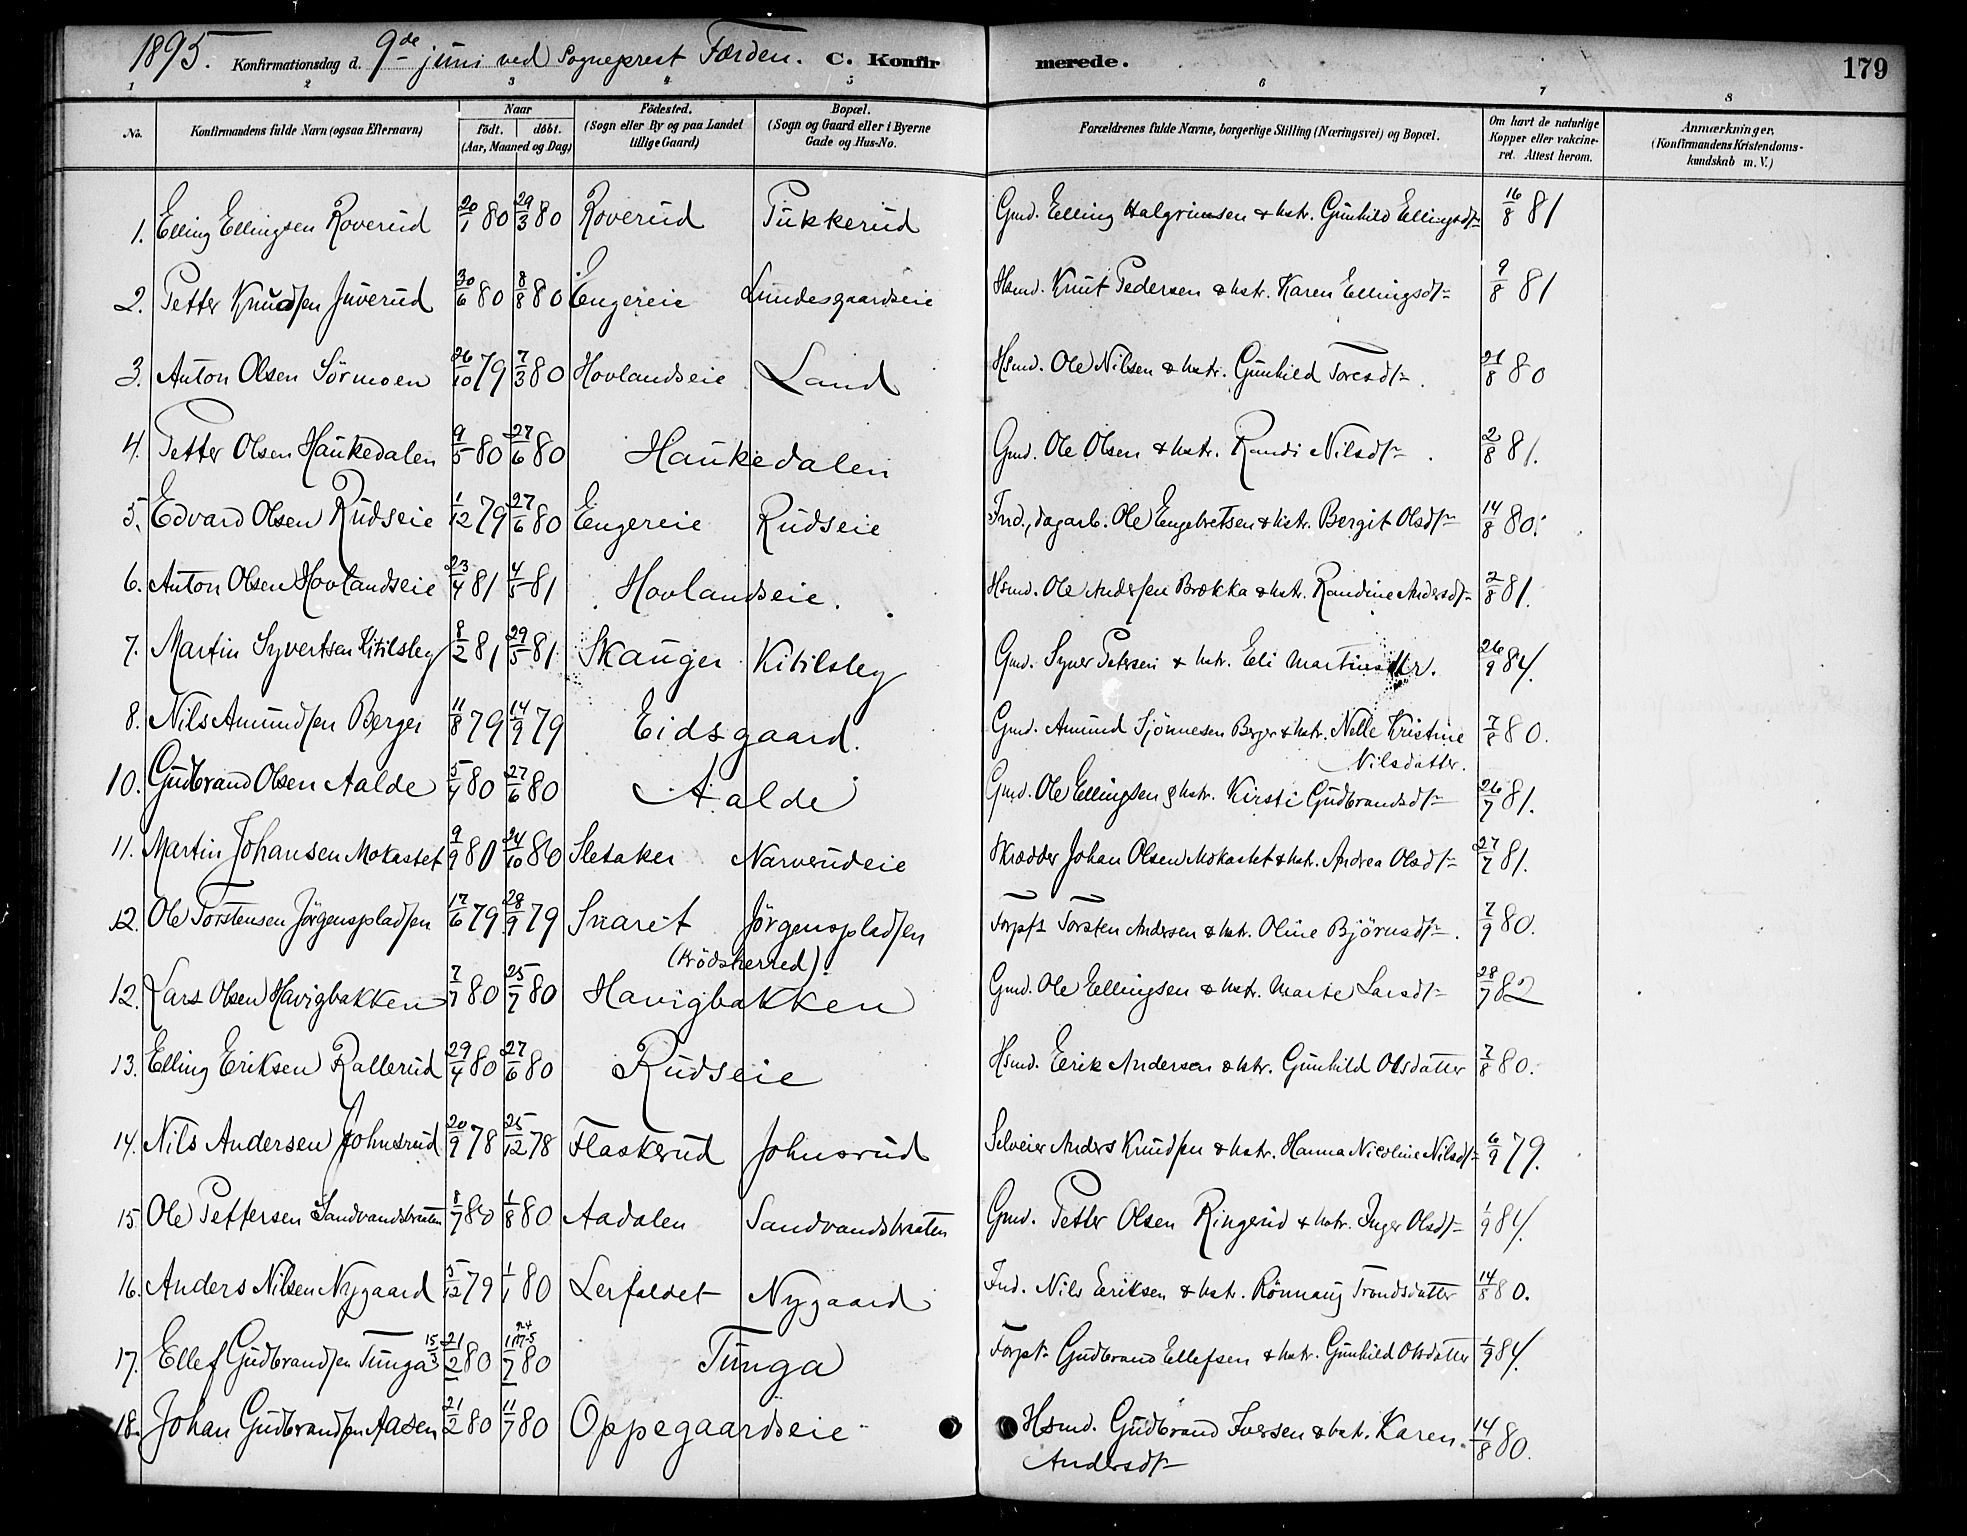 1895. Konfirmationsdag d. 9de juni ved Sogneprest Færden. C. Konfir merede. 179
1 2 3 4 5 6 7 8
No. Konfirmandens fulde Navn (ogsaa Efternavn) Naar födt. döbt. (Aar, Maaned og Dag) Födested. (Sogn eller By og paa Landet tillige Gaard) Bopæl. (Sogn og Gaard eller i Byerne Gade og Hus-No. Forældrenes fulde Navne, borgerlige Stilling (Næringsvei) og Bopæl. Om havt de naturlige Kopper eller vakcineret. Attest herom. Anmærkninger. (Konfirmandens Kristendomskundskab m. V.)
1. Elling Ellingsen Roverud 20/1 80 29/3 80 Roverud Pukkerud Gmd. Elling Halgrimsen & hstr. Gunhild Ellingsdtr 16/8 81
2. Petter Knudsen Juverud 30/6 80 8/8 80 Engereie Lundesgaardseie Hsmd. Knut Pedersen & hstr. Karen Ellingsdtr 9/8 81
3. Anton Olsen Sörmoen 26/10 79 7/3 80 Hovlandseie Land Hsmd. Ole Nilsen & hstr. Gunhild Toresdtr. 21/8 80
4. Petter Olsen Haukedalen 9/5 80 27/6 80 Haukedalen Gmd. Ole Olsen & hstr. Randi Nilsdtr. 2/8 81.
5. Edvard Olsen Rudseie 1/12 79 27/6 80 Engereie Rudseie Ind., dagarb. Ole Engebretsen & hstr. Bergit Olsdtr 14/8 80.
6. Anton Olsen Hovlandseie 23/4 81 4/5 81 Hovlandseie. Hsmd. Ole Andersen Brækka & hstr. Randine Andersdtr 2/8 81.
7. Martin Syvertsen Kitilsby 8/2 81 29/5 81 Skauger Kitilsby Gmd. Syver Petersen & hstr. Eli Martinsdtr. 26/9 84.
8. Nils Amundsen Berger 11/8 79 14/9 79 Eidsgaard. Gmd. Amund Sjönnesen Berger & hstr. Nelle Kristine Nilsdatter. 7/8 80.
10. Gudbrand Olsen Aalde 5/4 80 27/6 80 Aalde Gmd. Ole Ellingsen & hstr. Kirsti Gudbrandsdtr 26/7 81.
11. Martin Johansen Mokastet 9/9 80 24/10 80 Sletaker Narverudeie Skrædder Johan Olsen Mokastet & hstr. Andrea Olsdtr 27/7 81.
12. Ole Torstensen Jörgenspladsen 17/6 79 28/9 79 Snaret (Krödsherred). Jörgenspladsen Forpt. Torsten Andersen & hstr. Oline Björnsdtr. 7/9 80.
12. Lars Olsen Havigbakken 7/7 80 25/7 80 Havigbakken Gmd. Ole Ellingsen & hstr. Marte Larsdtr 28/7 82
13. Elling Eriksen Rallerud 29/4 80 27/6 80 Rudseie Hsmd. Eerik Andersen & hstr. Gunhild Olsdatter 7/8 80.
14. Nils Andersen Johnsrud 20/9 78 25/12 78 Flaskerud Johnsrud Selveier Anders Knudsen & hstr. Hanna Nicoline Nilsdtr 6/9 79.
15. Ole Pettersen Sandvandsbraaten 8/7 80 1/8 80 Aadalen Sandvandsbraaten Gmd. Petter Olsen Ringerud & hstr. Inger Olsdtr 1/9 84.
16. Anders Nilsen Nygaard 5/12 79 1/1 80 Lerfaldet Nygaard Ind. Nils Eeriksen & hstr. Rönnaug Trondsdatter 14/8 80.
17. Ellef Gudbrandsen Tunga 15/3 21/2 80 80 Tunga Forpt. Gudbrand Ellefsen & hstr. Gunhild Olsdatter 1/9 84.
18. Johan Gudbrandsen Aasen 21/2 80 11/7 80 Oppegaardseie Hsmd. Gudbrand Iversen & hstr. Karen Andersdtr 14/8 80.